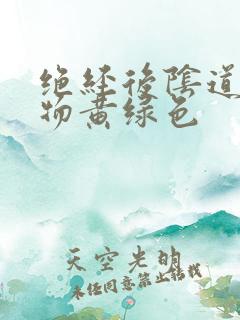 绝经后阴道
物黄绿色
天空光明
未经同意禁止转载